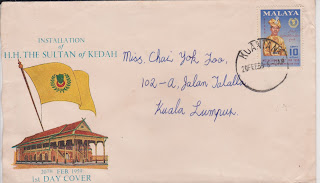 INSTALLATION
of
H.H. THE SULTAN of KEDAH
Miss. Chai Yok Foo,
102-A, Jalan Talalla
Kuala Lumpur.
MALAYA
10
KUANTAN
20TH FEB 1959
1st DAY COVER